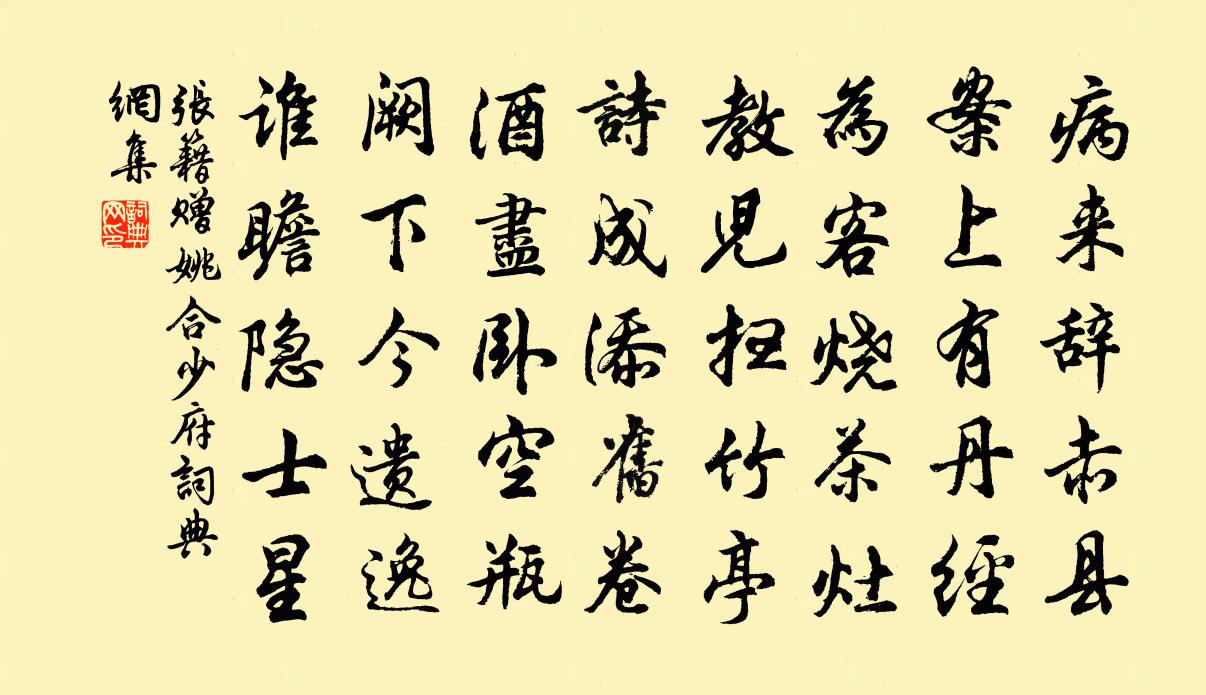 病来辞赤县
案上有丹經
為客烧茶灶
教児扫竹亭
詩成添舊卷
酒盡卧空瓶
阙下今遗逸
谁瞻隐士星
張籍赠姚合少府詞典
網集
詞典网印